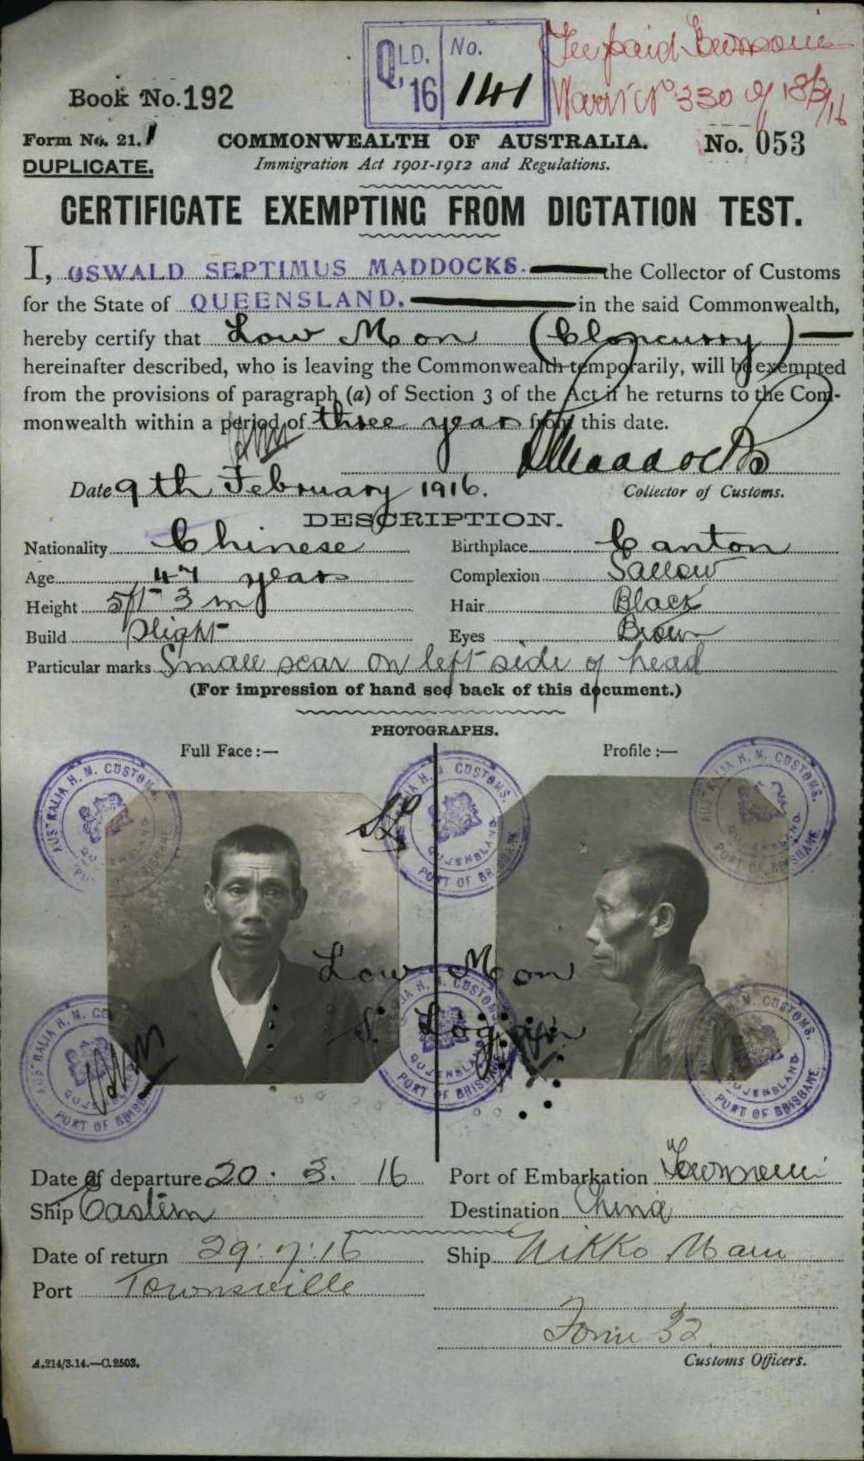 QLD. No.
'16 141
Fee paid Townsville
Warr't No 330 of 18/3/16
Book No. 192
Form No. 21.
COMMONWEALTH OF AUSTRALIA.
No. 053
DUPLICATE.
Immigration Act 1901-1912 and Regulations.
CERTIFICATE EXEMPTING FROM DICTATION TEST.
I, OSWALD SEPTIMUS MADDOCKS. the Collector of Customs
for the State of QUEENSLAND. in the said Commonwealth,
hereby certify that Low Mon (Cloncurry)
hereinafter described, who is leaving the Commonwealth temporarily, will be exempted
from the provisions of paragraph (a) of Section 3 of the Act if he returns to the Com-
monwealth within a period of three years from this date.
Maddocks
Date 9th February 1916.
Collector of Customs.
DESCRIPTION.
Nationality Chinese Birthplace Canton
Age 47 years Complexion Sallow
Height 5ft 3 in Hair Black
Build Slight Eyes Brown
Particular marks Small scar on left side of head
(For impression of hand see back of this document.)
PHOTOGRAPHS.
Full Face :— Profile :—
AUSTRALIA H. M. CUSTOMS. QUEENSLAND PORT OF BRISBANE
Low Mon
Date of departure 20. 3. 16 Port of Embarkation Townsville
Ship Eastern Destination China
Date of return 29.7.16 Ship Nikko Maru
Port Townsville
Form 32
A.214/3.14.—C.2503.
Customs Officers.